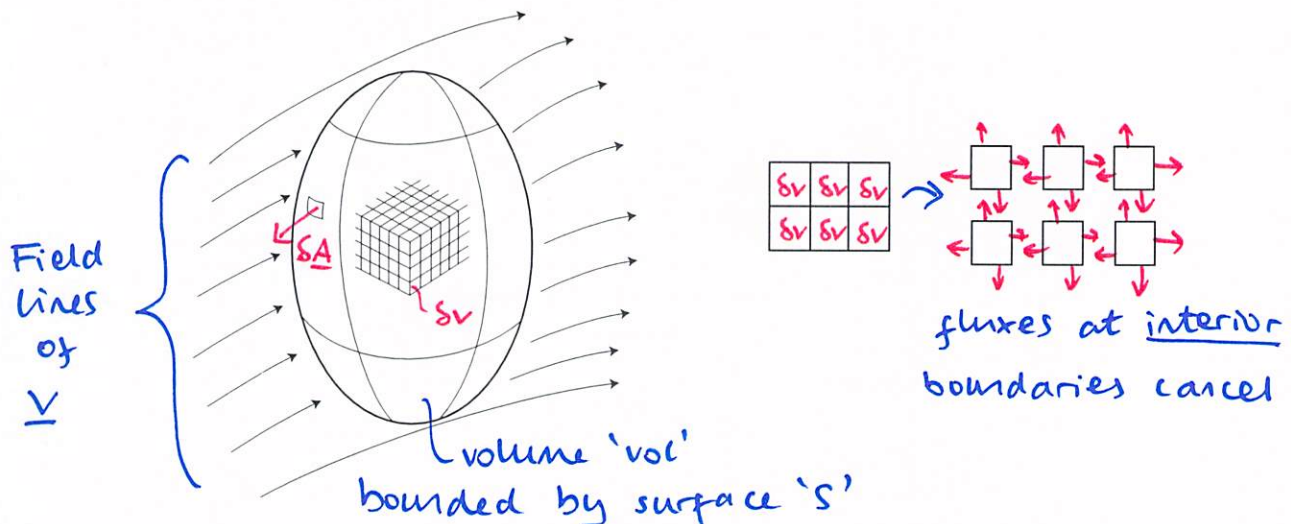 Field
lines
of
V
δA
δv
volume 'vol'
bounded by surface 'S'
δv δv δv
δv δv δv
fluxes at interior
boundaries cancel